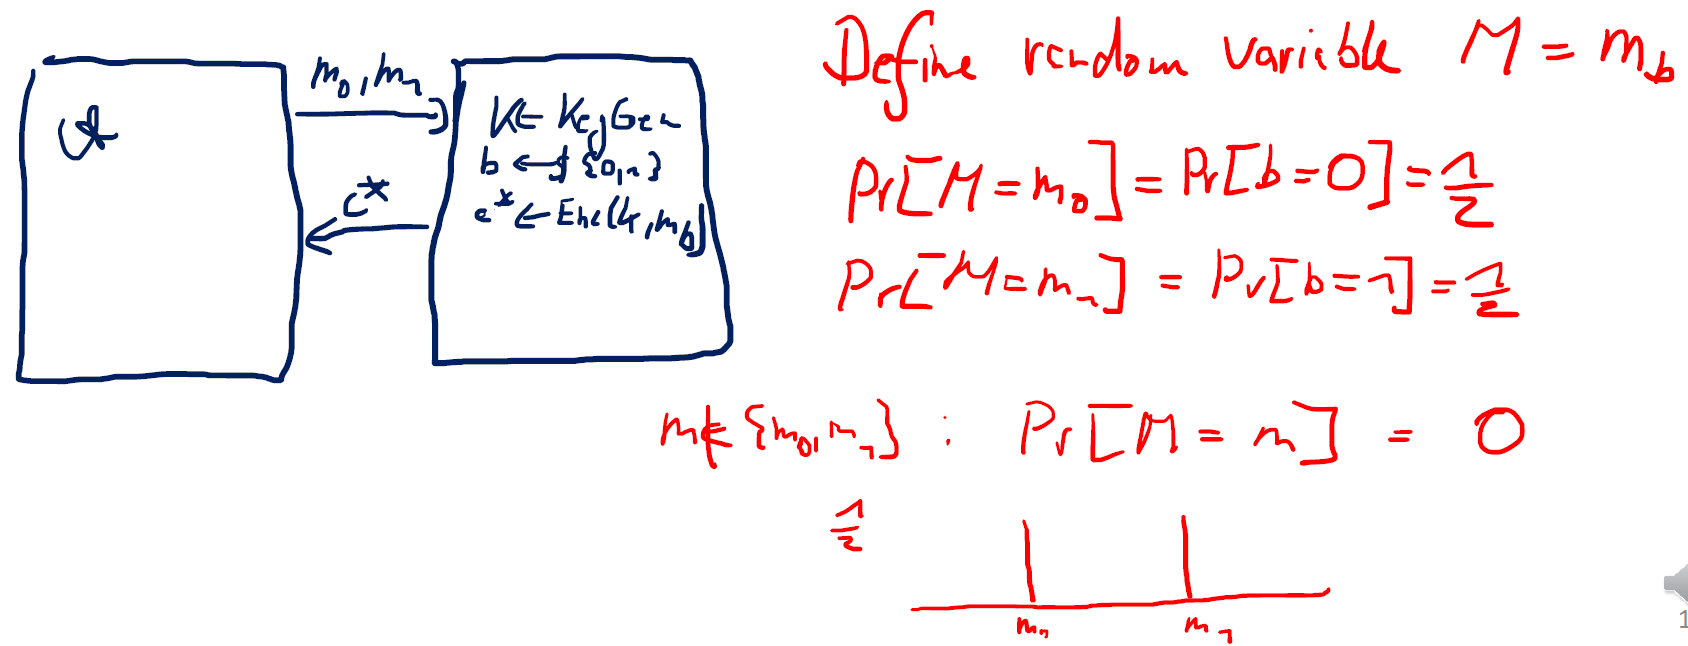 m₀, m₁
A
K ← KeyGen
b ←$ {0,1}
c* ← Enc(k, m_b)
c*
Define random variable M = m_b
Pr[M = m₀] = Pr[b = 0] = 1/2
Pr[M = m₁] = Pr[b = 1] = 1/2
m ∉ {m₀, m₁} : Pr[M = m] = 0
1/2
m₀ m₁
1